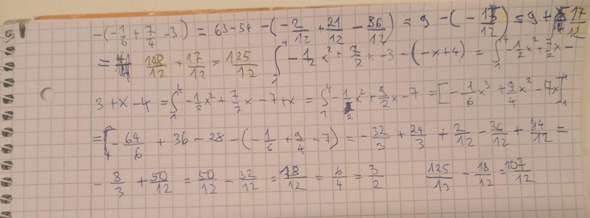 -(-1/6 + 7/4 - 3) = 63-54 -(-2/12 + 21/12 - 36/12) = 9 -(-17/12) = 9 + 17/12
= 108/12 + 17/12 = 125/12 ∫ -1/2x² + 7/2x - 3 - (-x+4) = ∫ -1/2x² + 7/2x -
3 + x - 4 = ∫ -1/2x² + 7/2x - 7 + x = ∫ -1/2x² + 9/2x - 7 = [-1/6x³ + 9/4x² - 7x]
= -64/6 + 36 - 28 - (-1/6 + 9/4 - 7) = -32/3 + 24/3 + 2/12 - 36/12 + 84/12 =
- 8/3 + 50/12 = 50/12 - 32/12 = 18/12 = 6/4 = 3/2 125/12 - 18/12 = 107/12